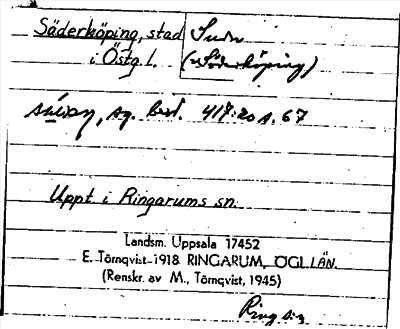 Söderköping, stad
i Östg. l. (Söderköping)
sg. best. 417:20 s. 67
Uppt. i Ringarums sn.
Landsm. Uppsala 17452
E. Törnqvist 1918 RINGARUM, ÖGL.LÄN.
(Renskr. av M., Törnqvist, 1945)